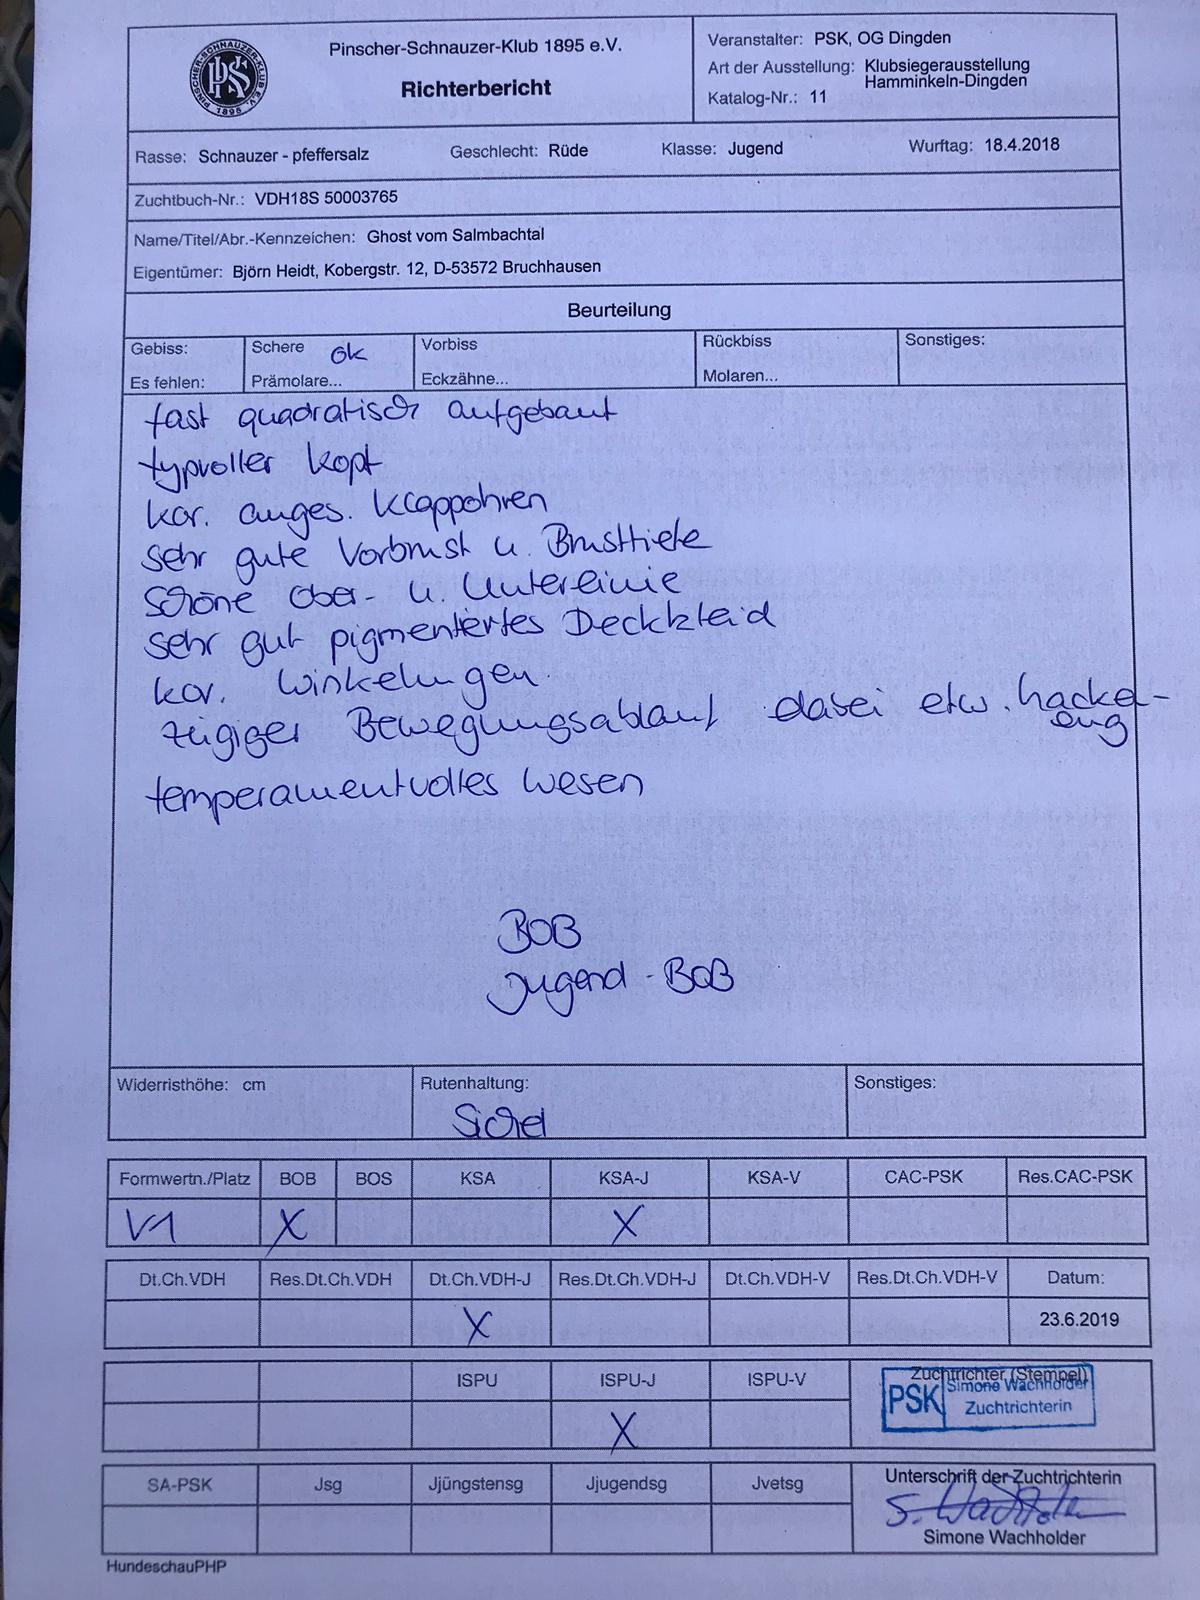 PINSCHER-SCHNAUZER-KLUB E.V.
PSK
1895
Pinscher-Schnauzer-Klub 1895 e.V.
Richterbericht
Veranstalter: PSK, OG Dingden
Art der Ausstellung: Klubsiegerausstellung
Hamminkeln-Dingden
Katalog-Nr.: 11
Rasse: Schnauzer - pfeffersalz Geschlecht: Rüde Klasse: Jugend Wurftag: 18.4.2018
Zuchtbuch-Nr.: VDH18S 50003765
Name/Titel/Abr.-Kennzeichen: Ghost vom Salmbachtal
Eigentümer: Björn Heidt, Kobergstr. 12, D-53572 Bruchhausen
Beurteilung
Gebiss: Schere ok Vorbiss Rückbiss Sonstiges:
Es fehlen: Prämolare... Eckzähne... Molaren...
fast quadratisch aufgebaut
typvoller Kopf
kor. anges. Klappohren
sehr gute Vorbrust u. Brusttiefe
schöne Ober- u. Unterlinie
sehr gut pigmentiertes Deckkleid
kor. Winkelungen.
zügiger Bewegungsablauf dabei etw. hacken-
eng
temperamentvolles Wesen
BOB
Jugend - BOB
Widerristhöhe: cm Rutenhaltung: Sonstiges:
Sichel
Formwertn./Platz BOB BOS KSA KSA-J KSA-V CAC-PSK Res.CAC-PSK
V1 X X
Dt.Ch.VDH Res.Dt.Ch.VDH Dt.Ch.VDH-J Res.Dt.Ch.VDH-J Dt.Ch.VDH-V Res.Dt.Ch.VDH-V Datum:
X 23.6.2019
ISPU ISPU-J ISPU-V Zuchtrichter (Stempel)
PSK Simone Wachholder
Zuchtrichterin
X
SA-PSK Jsg Jjüngstensg Jjugendsg Jvetsg Unterschrift der Zuchtrichterin
S. Wachholder
Simone Wachholder
HundeschauPHP